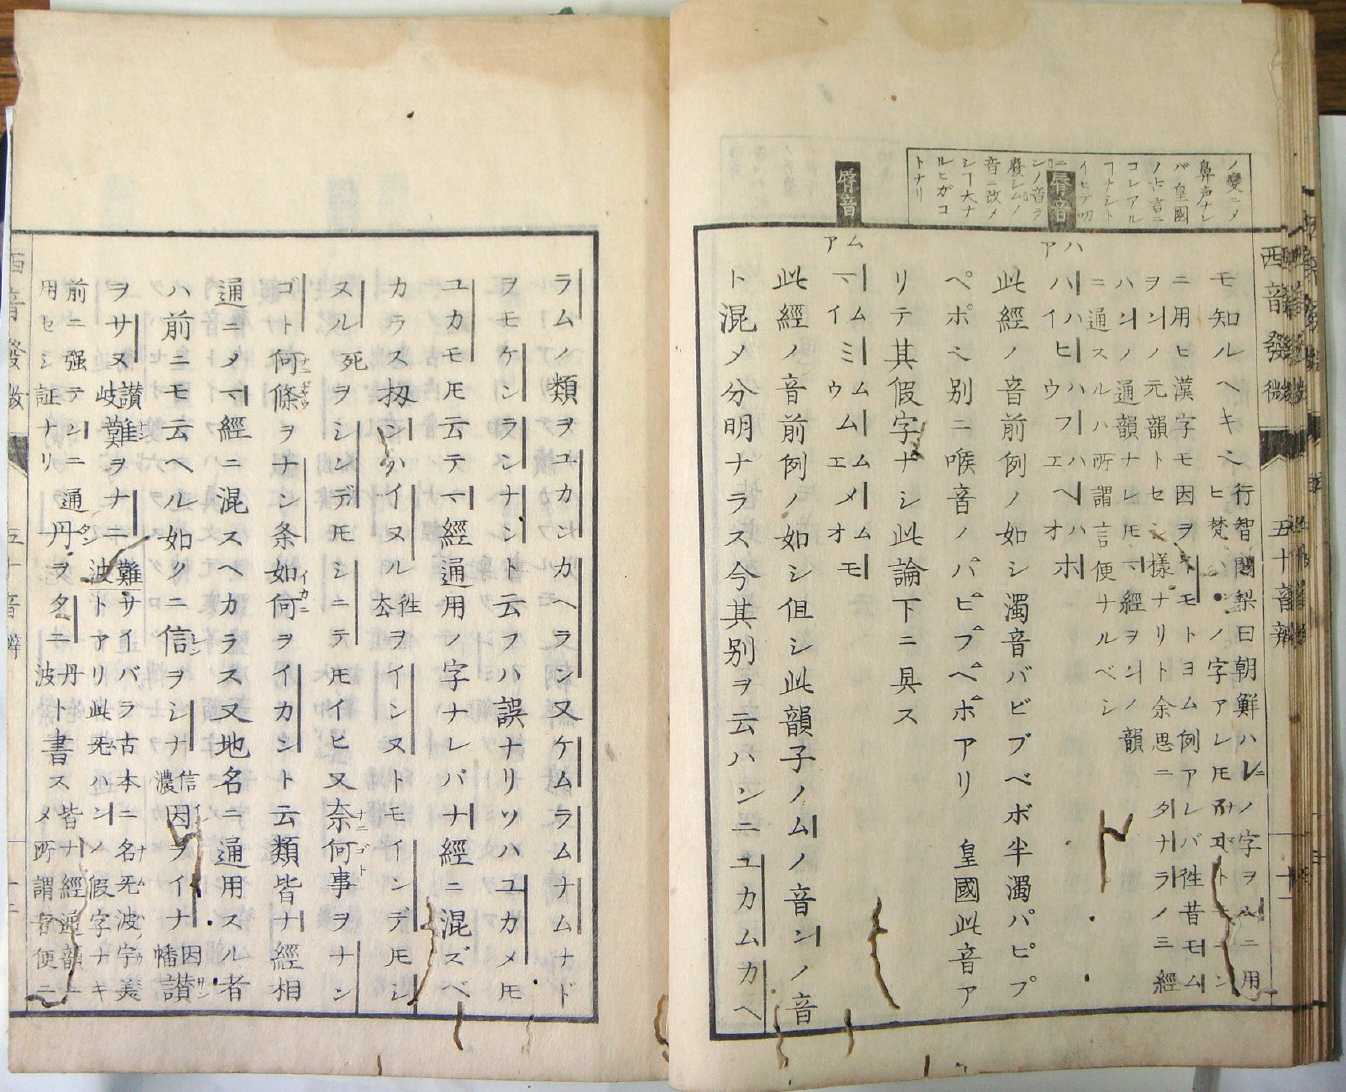 ノ變ニメ
鼻声ナレ
バ皇國
ノ古言ニ
コレアル
コナシト
イヒテ明
ニ唇音
ンノ音ヲ
廢シムノ
音ニ改メ
シハ大ナ
ルヒガコ
トナリ
西音發微
五十音辨
モ知ルヘキ
行智闍梨曰朝鮮ハレノ字ヲムニ用
ヒ梵ハンノ字アレモ
ニ用ヒ漢字モ因ヲトモトヨム例アレバ徃昔モム
ヲンノ元韻トセシ樣ナリト余思ニタナラノ三經
ハンノ通韻ナレモマ經ヲンノ韻
ニ通スルハ所謂言便ナルベシ
ハハヒハフハヘハホ
アハイウエオ
此經ノ音前例ノ如シ濁音バビブベボ半濁パピプ
ペポハ別ニ喉音ノパピプペポアリ 皇國此音ア
リテ其假字ナシ此論下ニ具ス
唇音
マムミムムムメムモ
アムイウエオ
此經ノ音前例ノ如シ但シ此韻子ノムノ音ンノ音
ト混メ分明ナラス今其別ヲ云ハンニユカムカヘ
ラムノ類ヲユカンカヘラン又ケムラムナムナド
ヲモケンランナント云フハ誤ナリソハユカメモ
ユカモモ云テマ經通用ノ字ナレバナ經ニ混ズベ
カラス扨ンハイヌル徃去ヲインヌトモインデモシ
ヌル死ヲシンデモシニテモイヒ又奈何事ヲナン
ゴト何條ヲナン条如何ヲイカント云類皆ナ經相
通ニメマ經ニ混スヘカラス又地名ニ通用スル者
ハ前ニモ云ヘル如クニ信ヲシナ信濃因ヲイナ因幡讃
ヲサヌ讃岐難ヲナニ難波サイバラ古本ニ名无波字美
前ニ强テシニ通丹ヲタニ丹波トアリ此无ハンノ假字ナキ
用セシ証ナリ名ニ丹波ト書ス皆ナ經通韻ニメ所謂音便ニ
西音發微
五十音辨